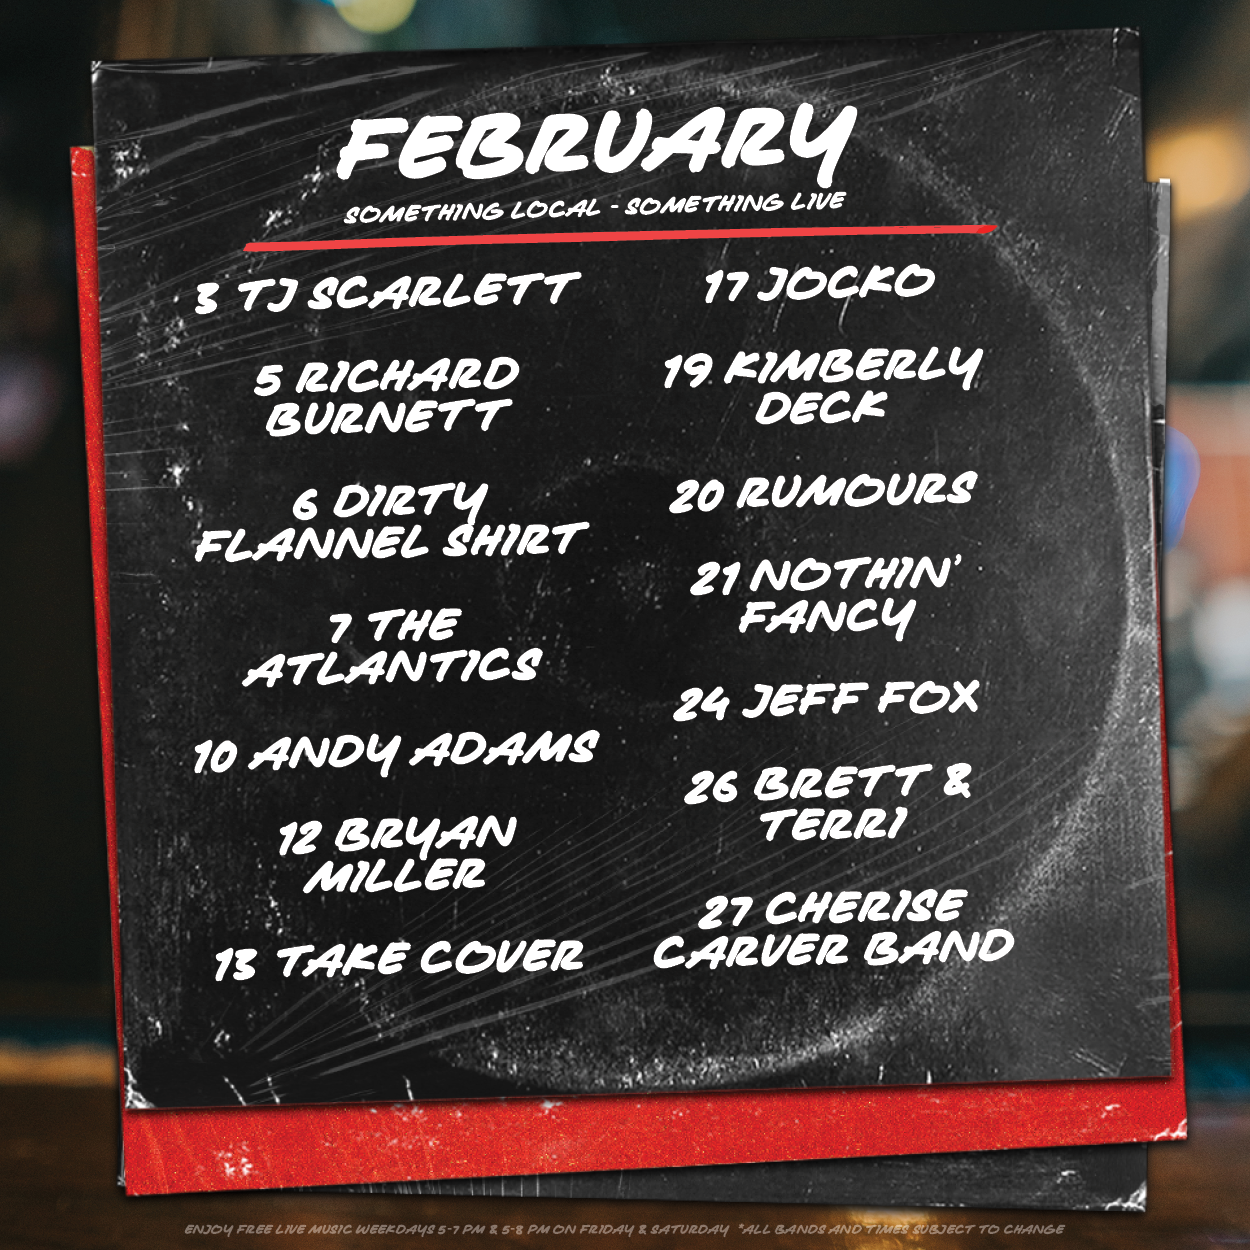 FEBRUARY
SOMETHING LOCAL - SOMETHING LIVE
3 TJ SCARLETT
5 RICHARD
BURNETT
6 DIRTY
FLANNEL SHIRT
7 THE
ATLANTICS
10 ANDY ADAMS
12 BRYAN
MILLER
13 TAKE COVER
17 JOCKO
19 KIMBERLY
DECK
20 RUMOURS
21 NOTHIN'
FANCY
24 JEFF FOX
26 BRETT &
TERRI
27 CHERISE
CARVER BAND
ENJOY FREE LIVE MUSIC WEEKDAYS 5-7 PM & 5-8 PM ON FRIDAY & SATURDAY *ALL BANDS AND TIMES SUBJECT TO CHANGE